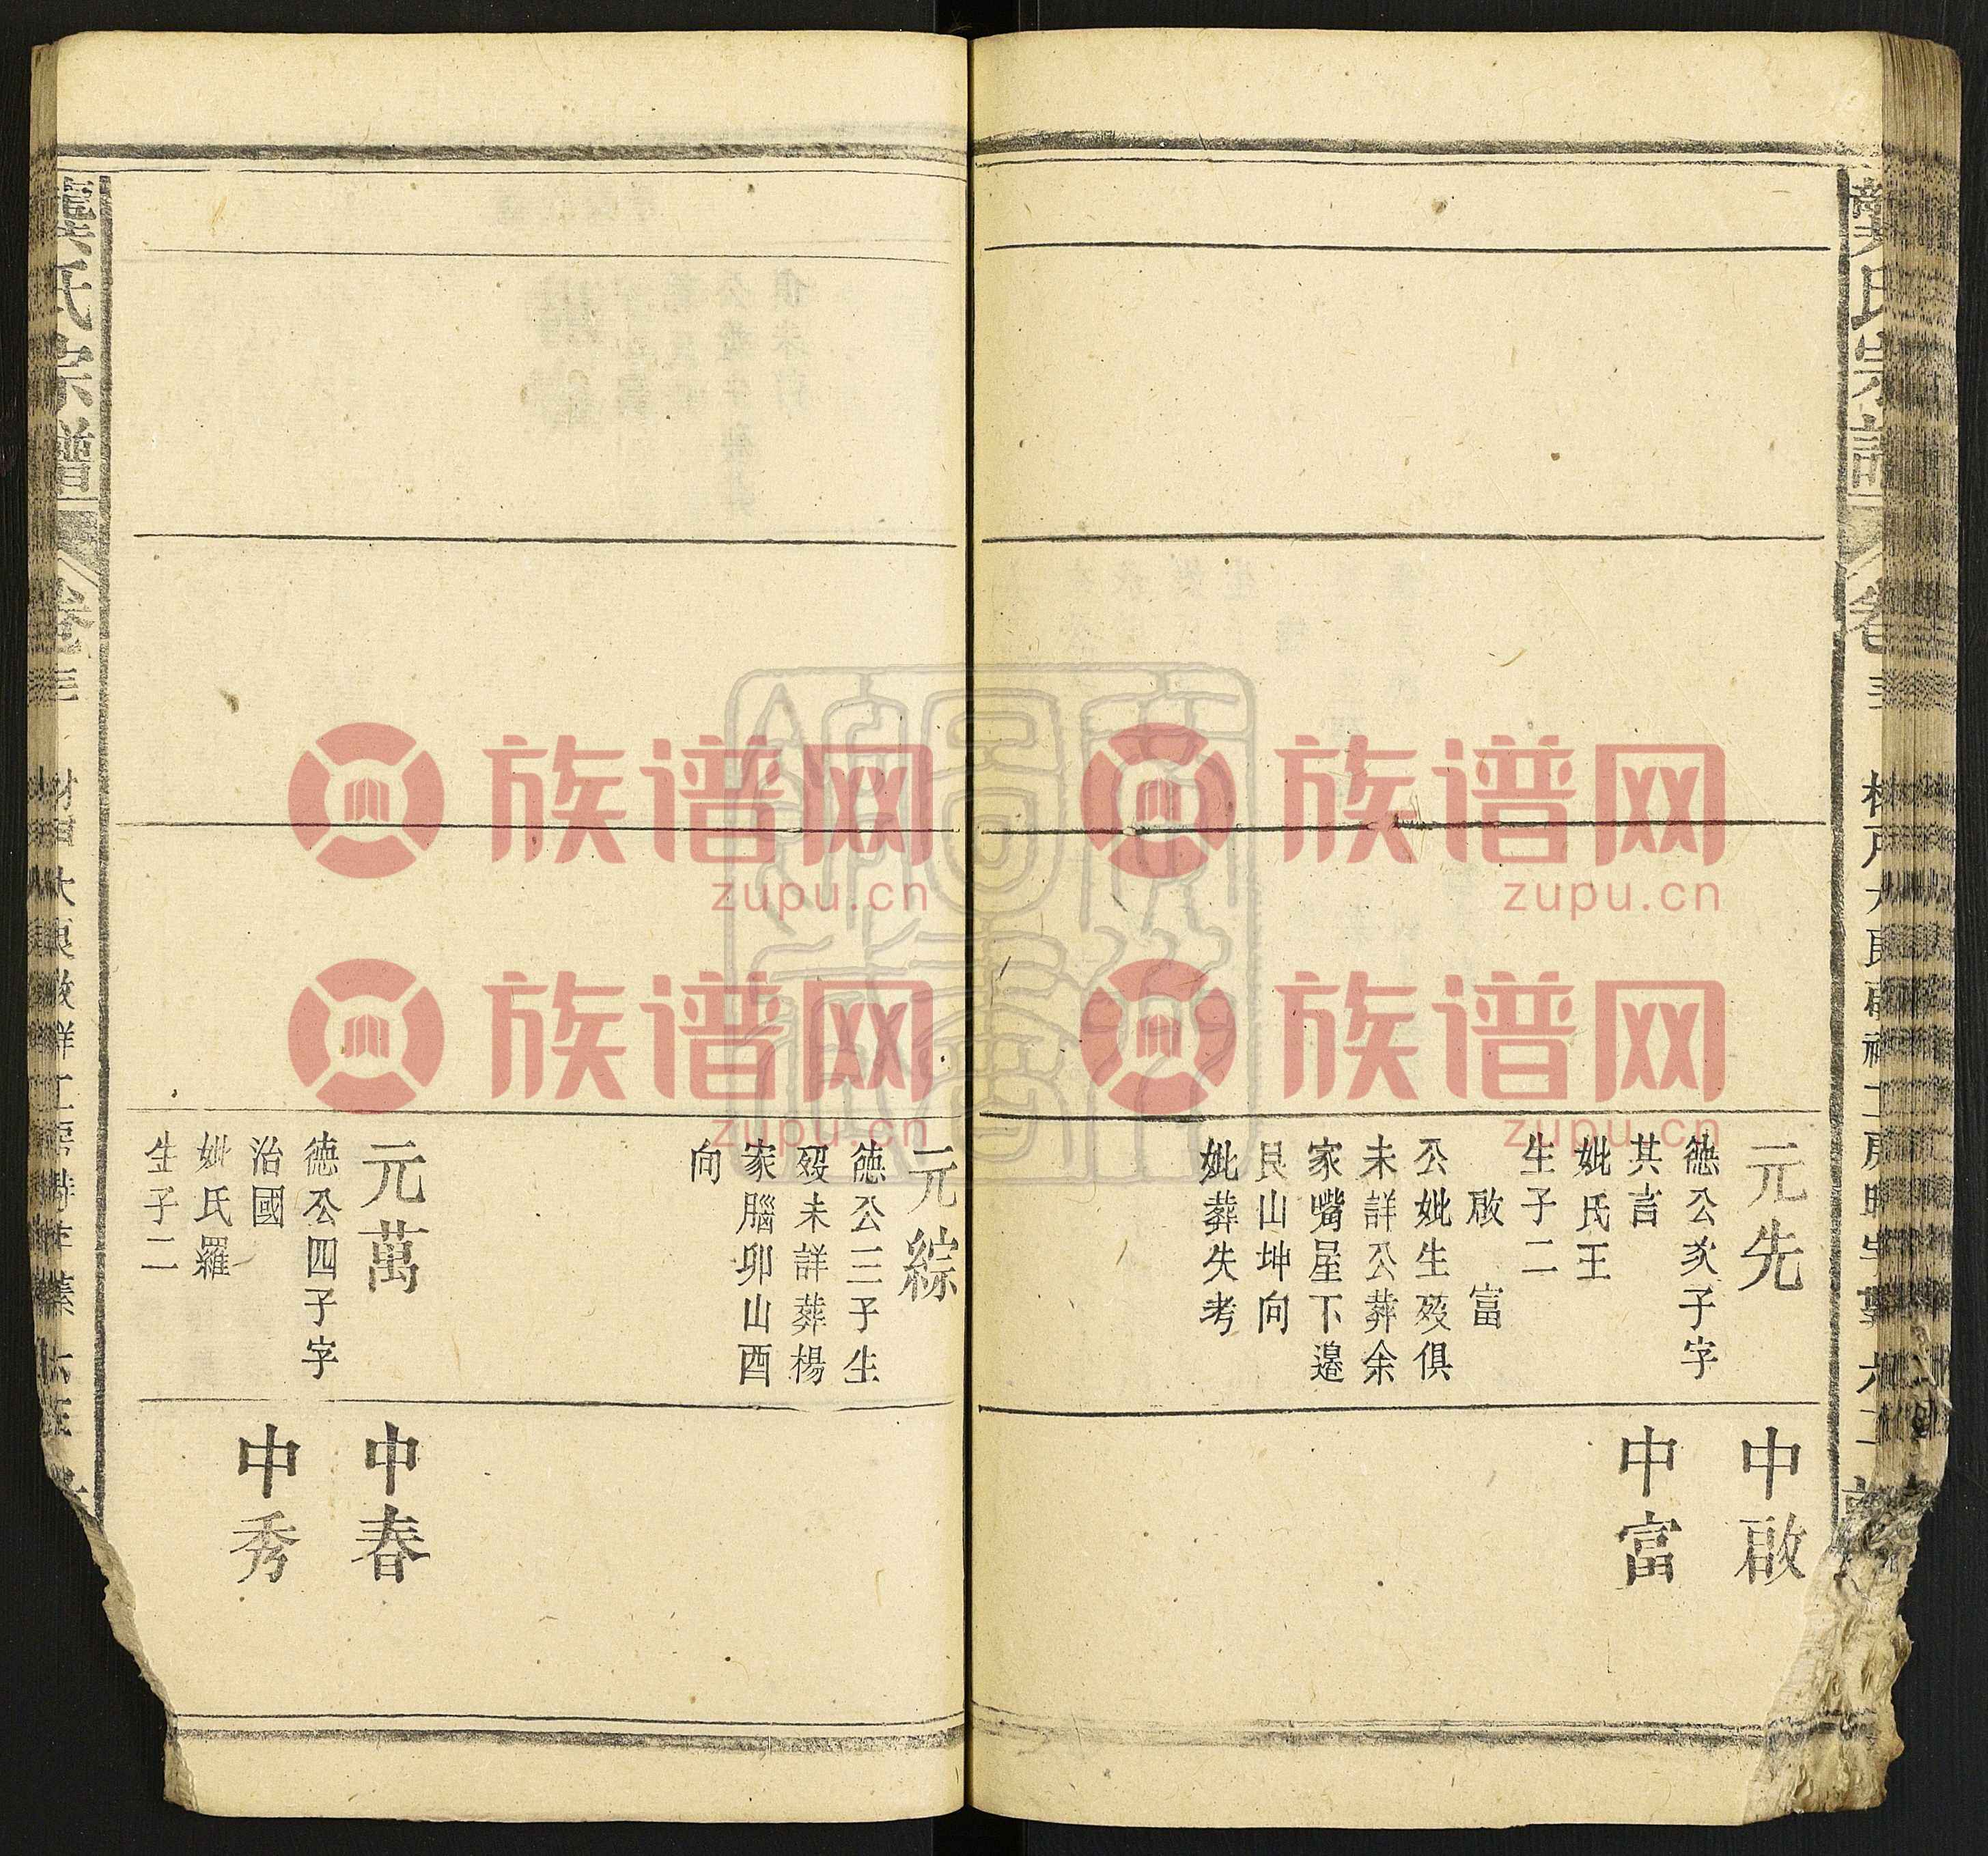 氏宗譜
卷三
元先
德公次子字
其言
妣氏王
生子二
啟 富
公妣生殁俱
未詳公葬余
家嘴星下邉
艮山坤向
妣葬失考
中啟
中富
元綜
德公三子生
殁未詳葬楊
家腦卯山酉
向
元萬
德公四子字
治國
妣氏羅
生子二
中春
中秀
龔氏宗譜
卷三
族谱网
zupu.cn
族谱网
zupu.cn
族谱网
zupu.cn
族谱网
zupu.cn